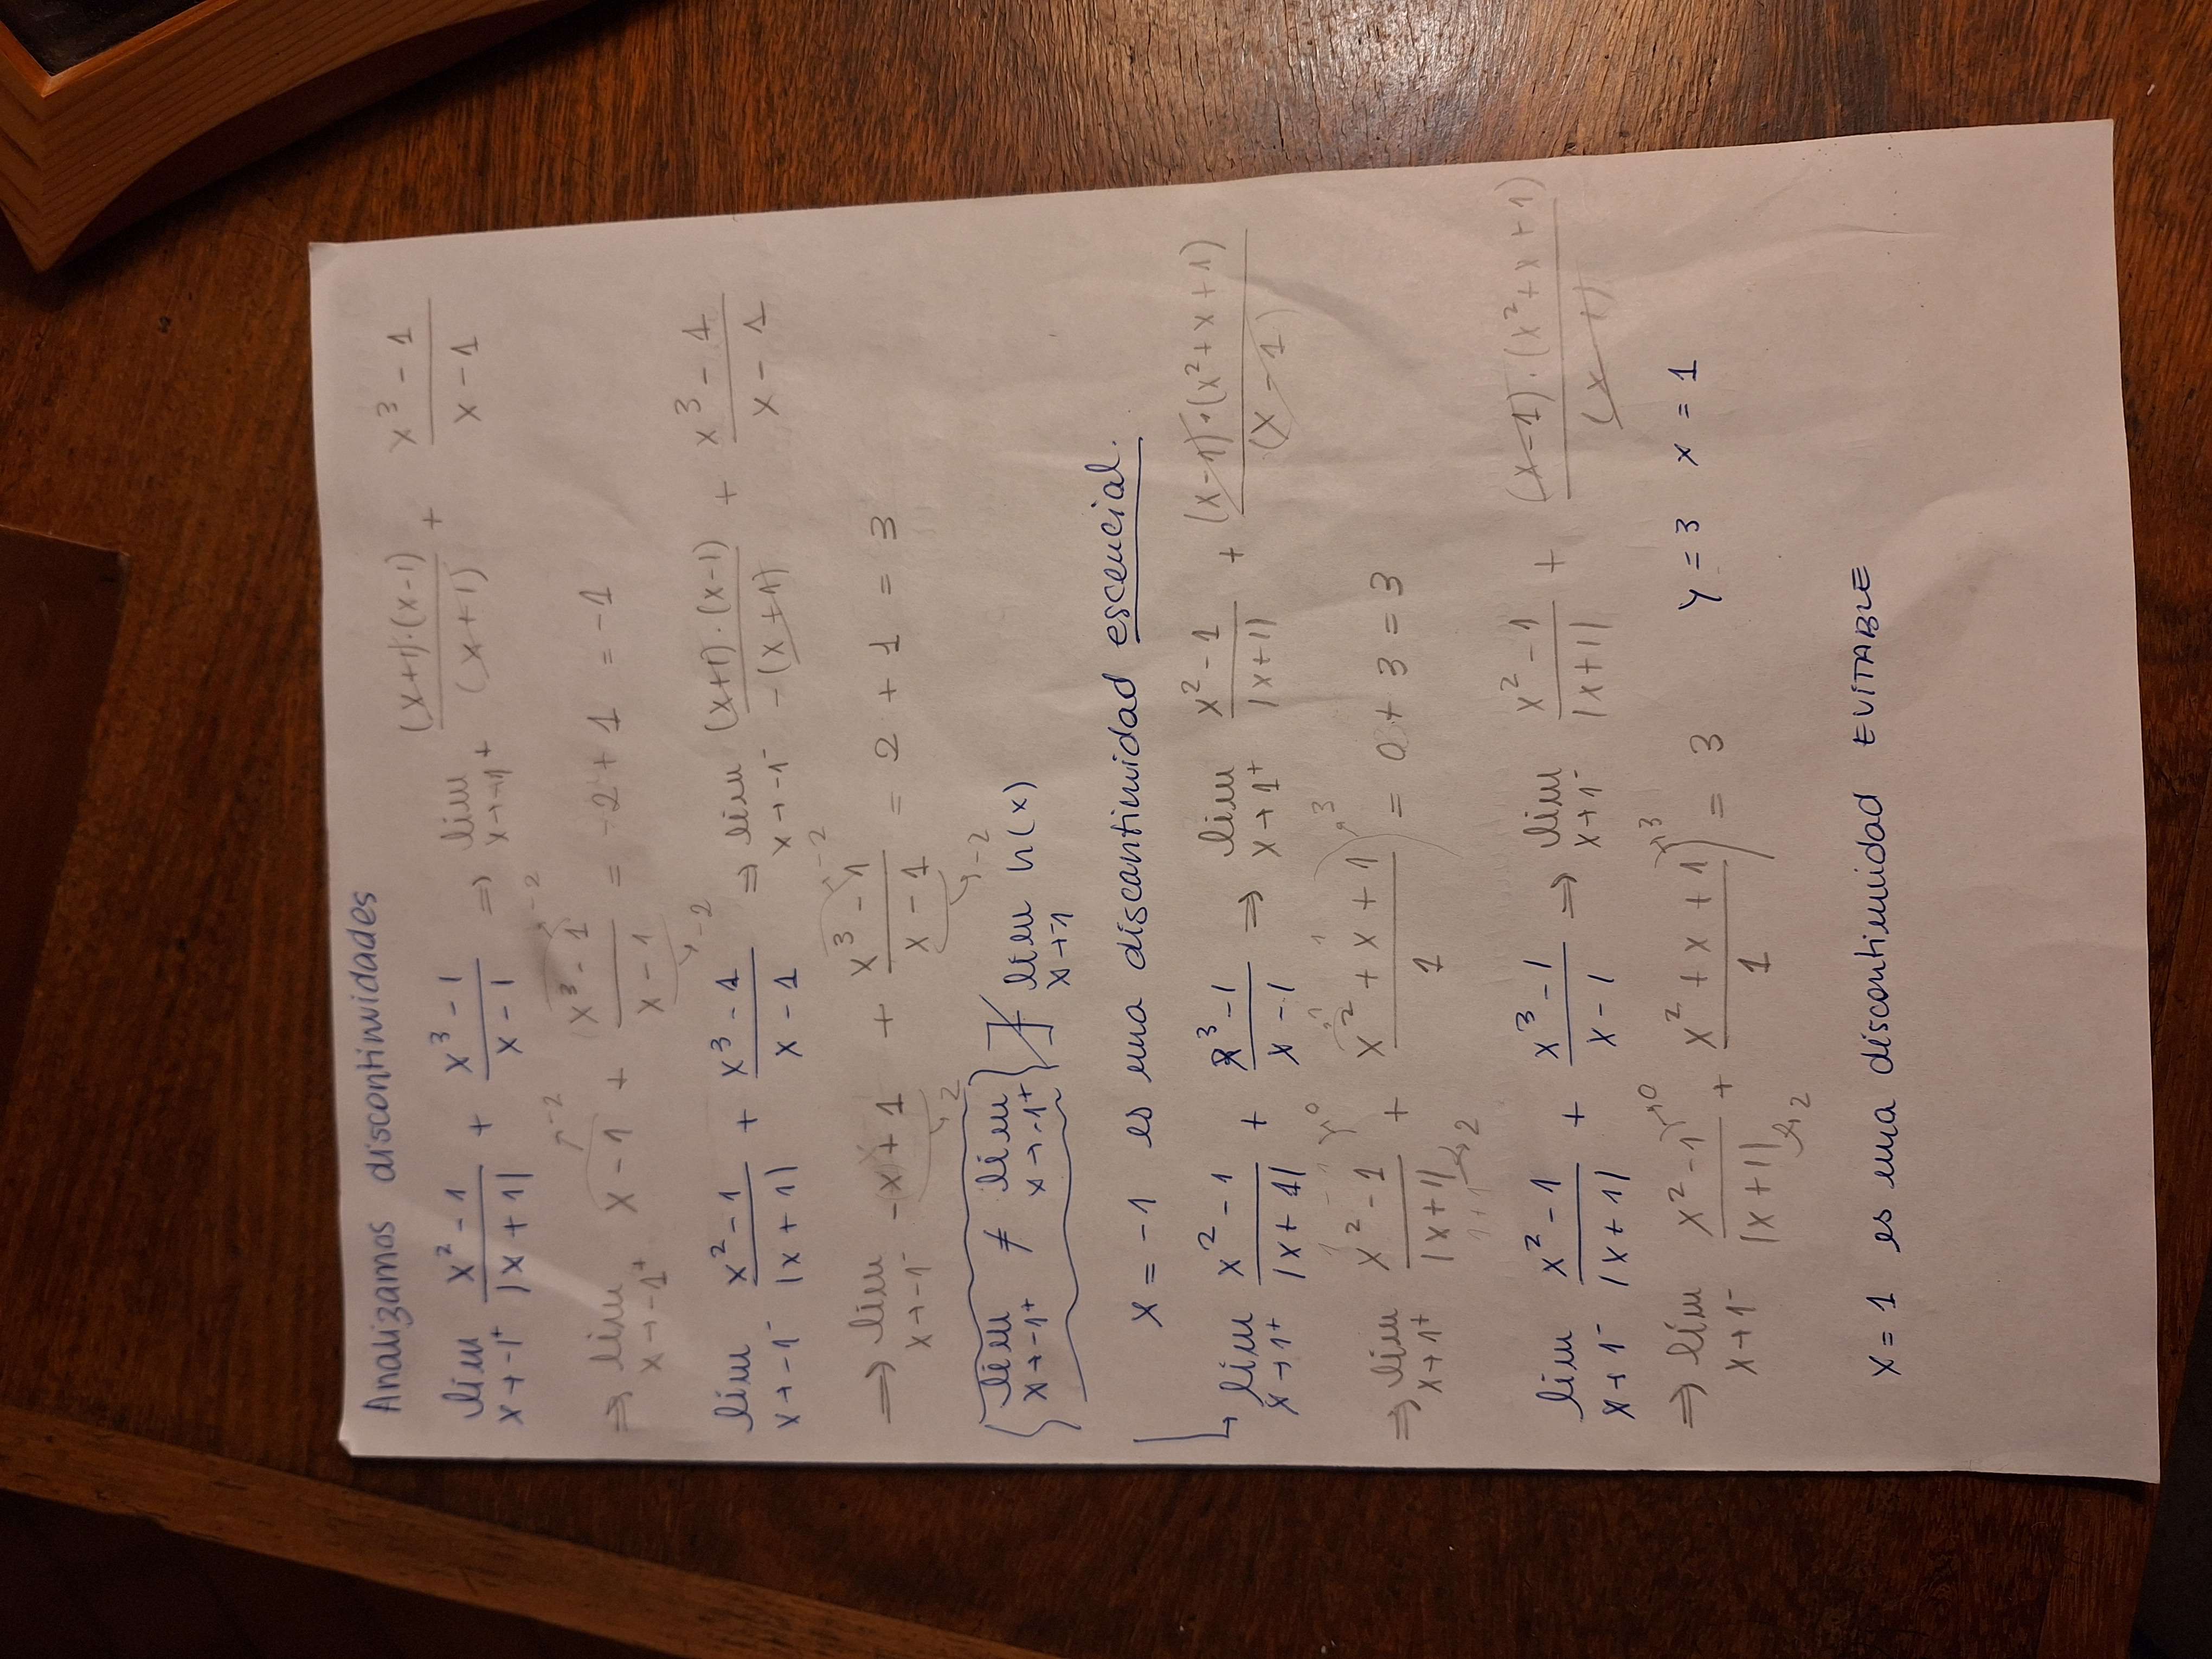 Analizamos discontinuidades
lim x→-1⁺ (x² - 1)/|x + 1| + (x³ - 1)/(x - 1) ⇒ lim x→-1⁺ ((x+1)·(x-1))/(x+1) + (x³ - 1)/(x - 1)
⇒ lim x→-1⁺ x - 1 ↗-2 + (x³ - 1 ↗-2)/(x - 1 ↘-2) = -2 + 1 = -1
lim x→-1⁻ (x² - 1)/|x + 1| + (x³ - 1)/(x - 1) ⇒ lim x→-1⁻ ((x+1)·(x-1))/(-(x+1)) + (x³ - 1)/(x - 1)
⇒ lim x→-1⁻ -x + 1 ↘2 + (x³ - 1 ↗-2)/(x - 1 ↘-2) = 2 + 1 = 3
{lim x→-1⁺ ≠ lim x→-1⁺} ∄ lim x→-1 h(x)
x = -1 es una discontinuidad escencial.
lim x→1⁺ (x² - 1)/|x + 1| + (x³ - 1)/(x - 1) ⇒ lim x→1⁺ (x² - 1)/|x+1| + ((x-1)·(x² + x + 1))/(x - 1)
1 - 1 →0 1 1 →3
⇒ lim x→1⁺ (x² - 1)/|x+1| + (x² + x + 1)/1 = 0 + 3 = 3
1 + 1 →2
lim x→1⁻ (x² - 1)/|x + 1| + (x³ - 1)/(x - 1) ⇒ lim x→1⁻ (x² - 1)/|x+1| + ((x-1)·(x² + x + 1))/(x-1)
⇒ lim x→1⁻ (x² - 1 →0)/(|x+1| →2) + (x² + x + 1)/1 →3 = 3 y = 3 x = 1
x = 1 es una discontinuidad EVITABLE